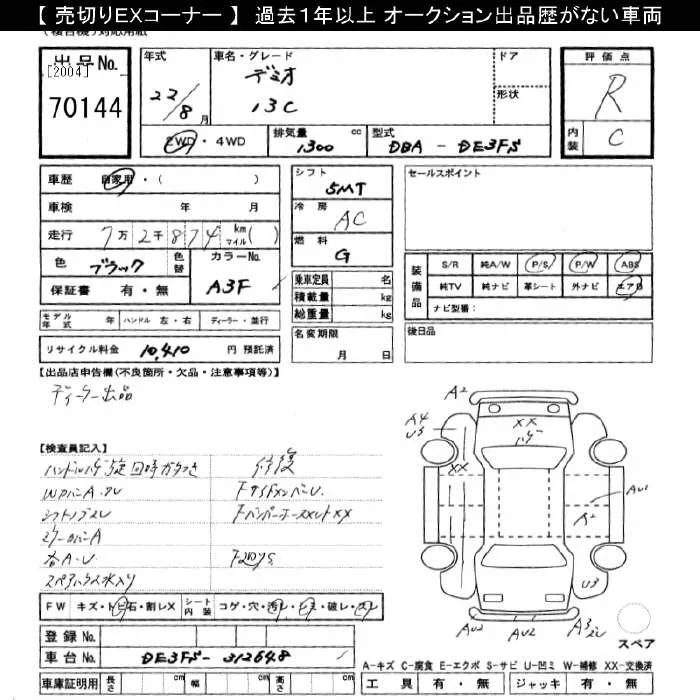 【 売切りEXコーナー 】 過去1年以上 オークション出品歴がない車両
出品No.
[2004]
70144
年式
22/8月
車名・グレード
デミオ
13C
ドア
形状
評価点
R
内装
C
2WD・4WD
排気量
1300 cc
型式
DBA - DE3FS
車歴 自家用・( )
車検 年 月
走行 7万2千874 km マイル( )
色 ブラック 色替
カラーNo.
A3F
保証書 有・無
シフト
5MT
冷房
AC
燃料
G
乗車定員 名
積載量 kg
総重量 kg
セールスポイント
装備品
S/R 純A/W P/S P/W ABS
純TV 純ナビ 革シート 外ナビ エアB
ナビ型番:
モデル年式 年 ハンドル 左・右 ディーラー・並行
名変期限
月 日
後日品
リサイクル料金 10,410 円 預託済
【出品店申告欄(不良箇所・欠品・注意事項等)】
ディーラー出品
【検査員記入】
修復
ミラーカバーA
各A・U
A2
A4
U3
XX
XX
AU1
A2
U3
AU2
AU2
A3
スペア
FW キズ・トビ石・割レX シート内装 コゲ・穴・汚レ・シミ・破レ・スレ
登録No.
車台No. DE3FS-312648
車庫証明用 長さ cm 幅 cm 高さ cm
A-キズ C-腐食 E-エクボ S-サビ U-凹ミ W-補修 XX-交換済
工具 有・無 ジャッキ 有・無